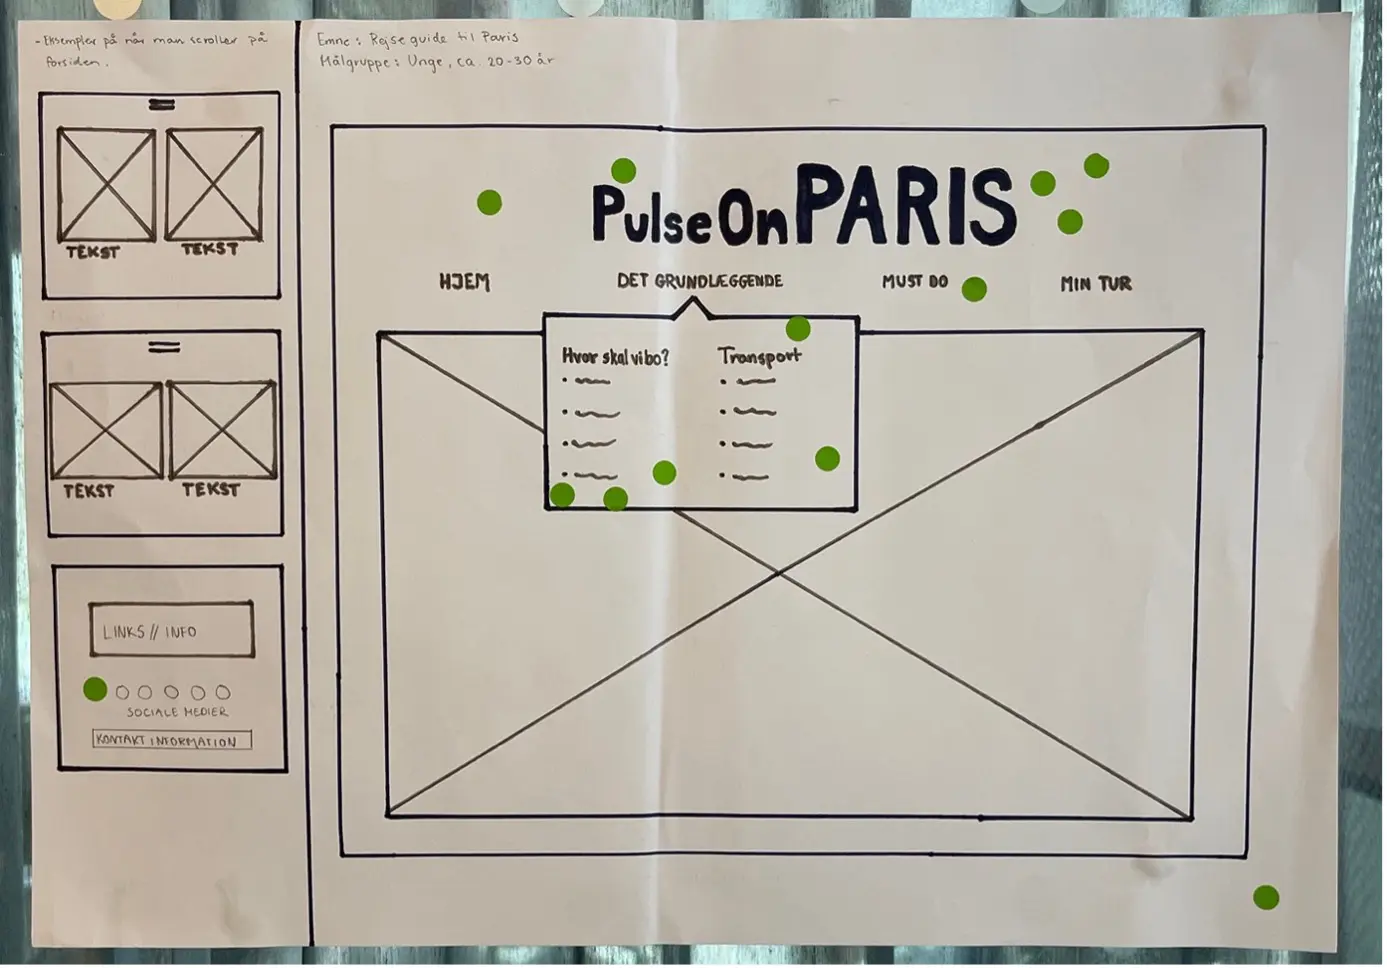 - Eksempler på når man scroller på
forsiden.
TEKST TEKST
TEKST TEKST
LINKS // INFO
SOCIALE MEDIER
KONTAKT INFORMATION
Emne: Rejseguide til Paris
Målgruppe: Unge, ca. 20-30 år
PulseOnPARIS
HJEM DET GRUNDLÆGGENDE MUST DO MIN TUR
Hvor skal vi bo? Transport